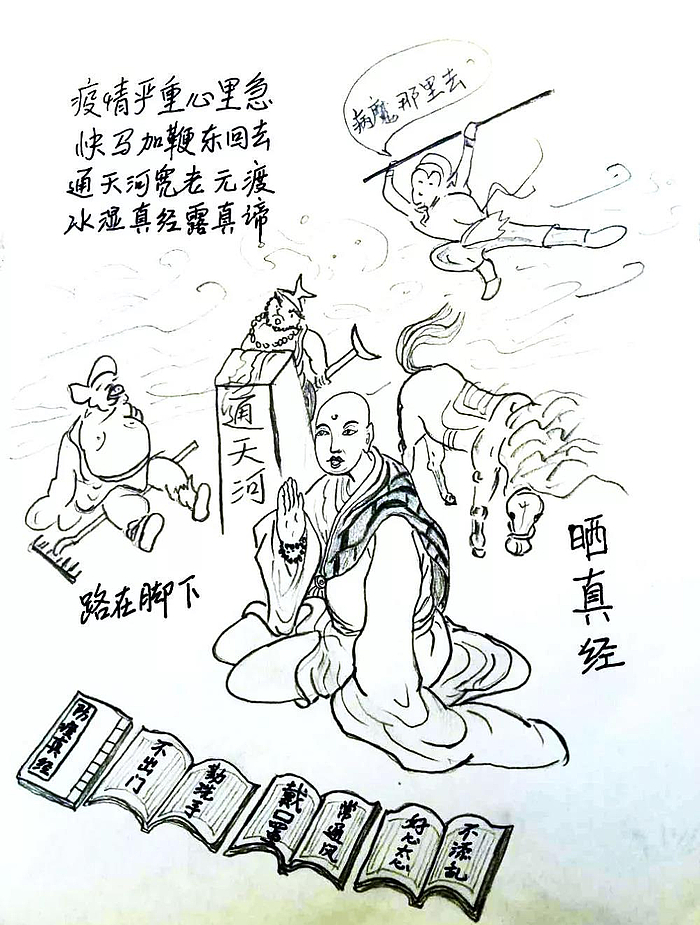 疫情严重心里急
快马加鞭东回去
通天河宽老元渡
水湿真经露真谛
病魔那里去
通天河
晒真经
路在脚下
防唯真经
不出门
勤洗手
戴口罩
常通风
好心态
不添乱